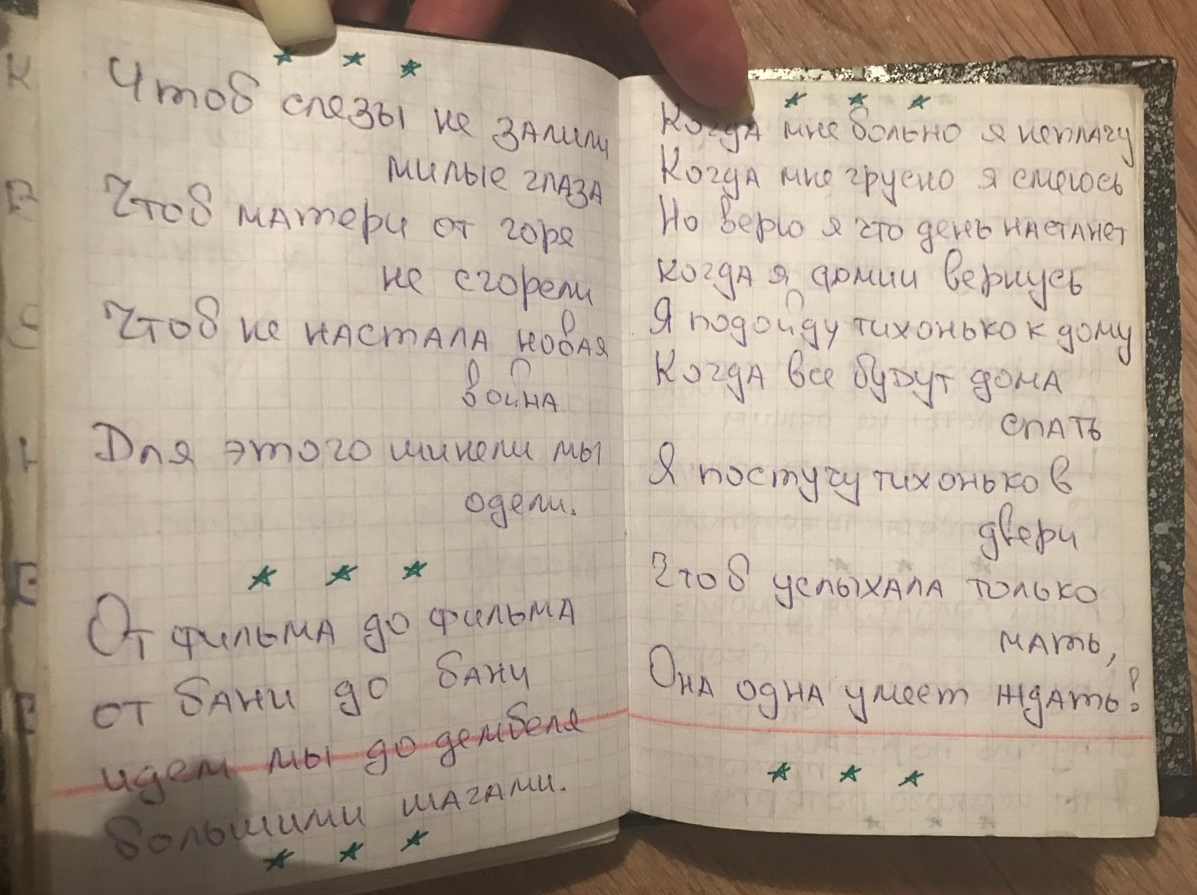 * * *
Чтоб слезы не залили
милые глаза
Чтоб матери от горе
не сгорели
Чтоб не настала новая
война
Для этого шинели мы
одели.
* * *
От фильма до фильма
от бани до бани
идем мы до дембеля
большими шагами.
* * *
* * *
Когда мне больно я неплачу
Когда мне грусно я смеюсь
Но верю я что день настанет
когда я армии вернусь
Я подойду тихонько к дому
Когда все будут дома
спать
Я постучу тихонько в
двери
Чтоб услыхала только
мать,
Она одна умеет ждать!
* * *